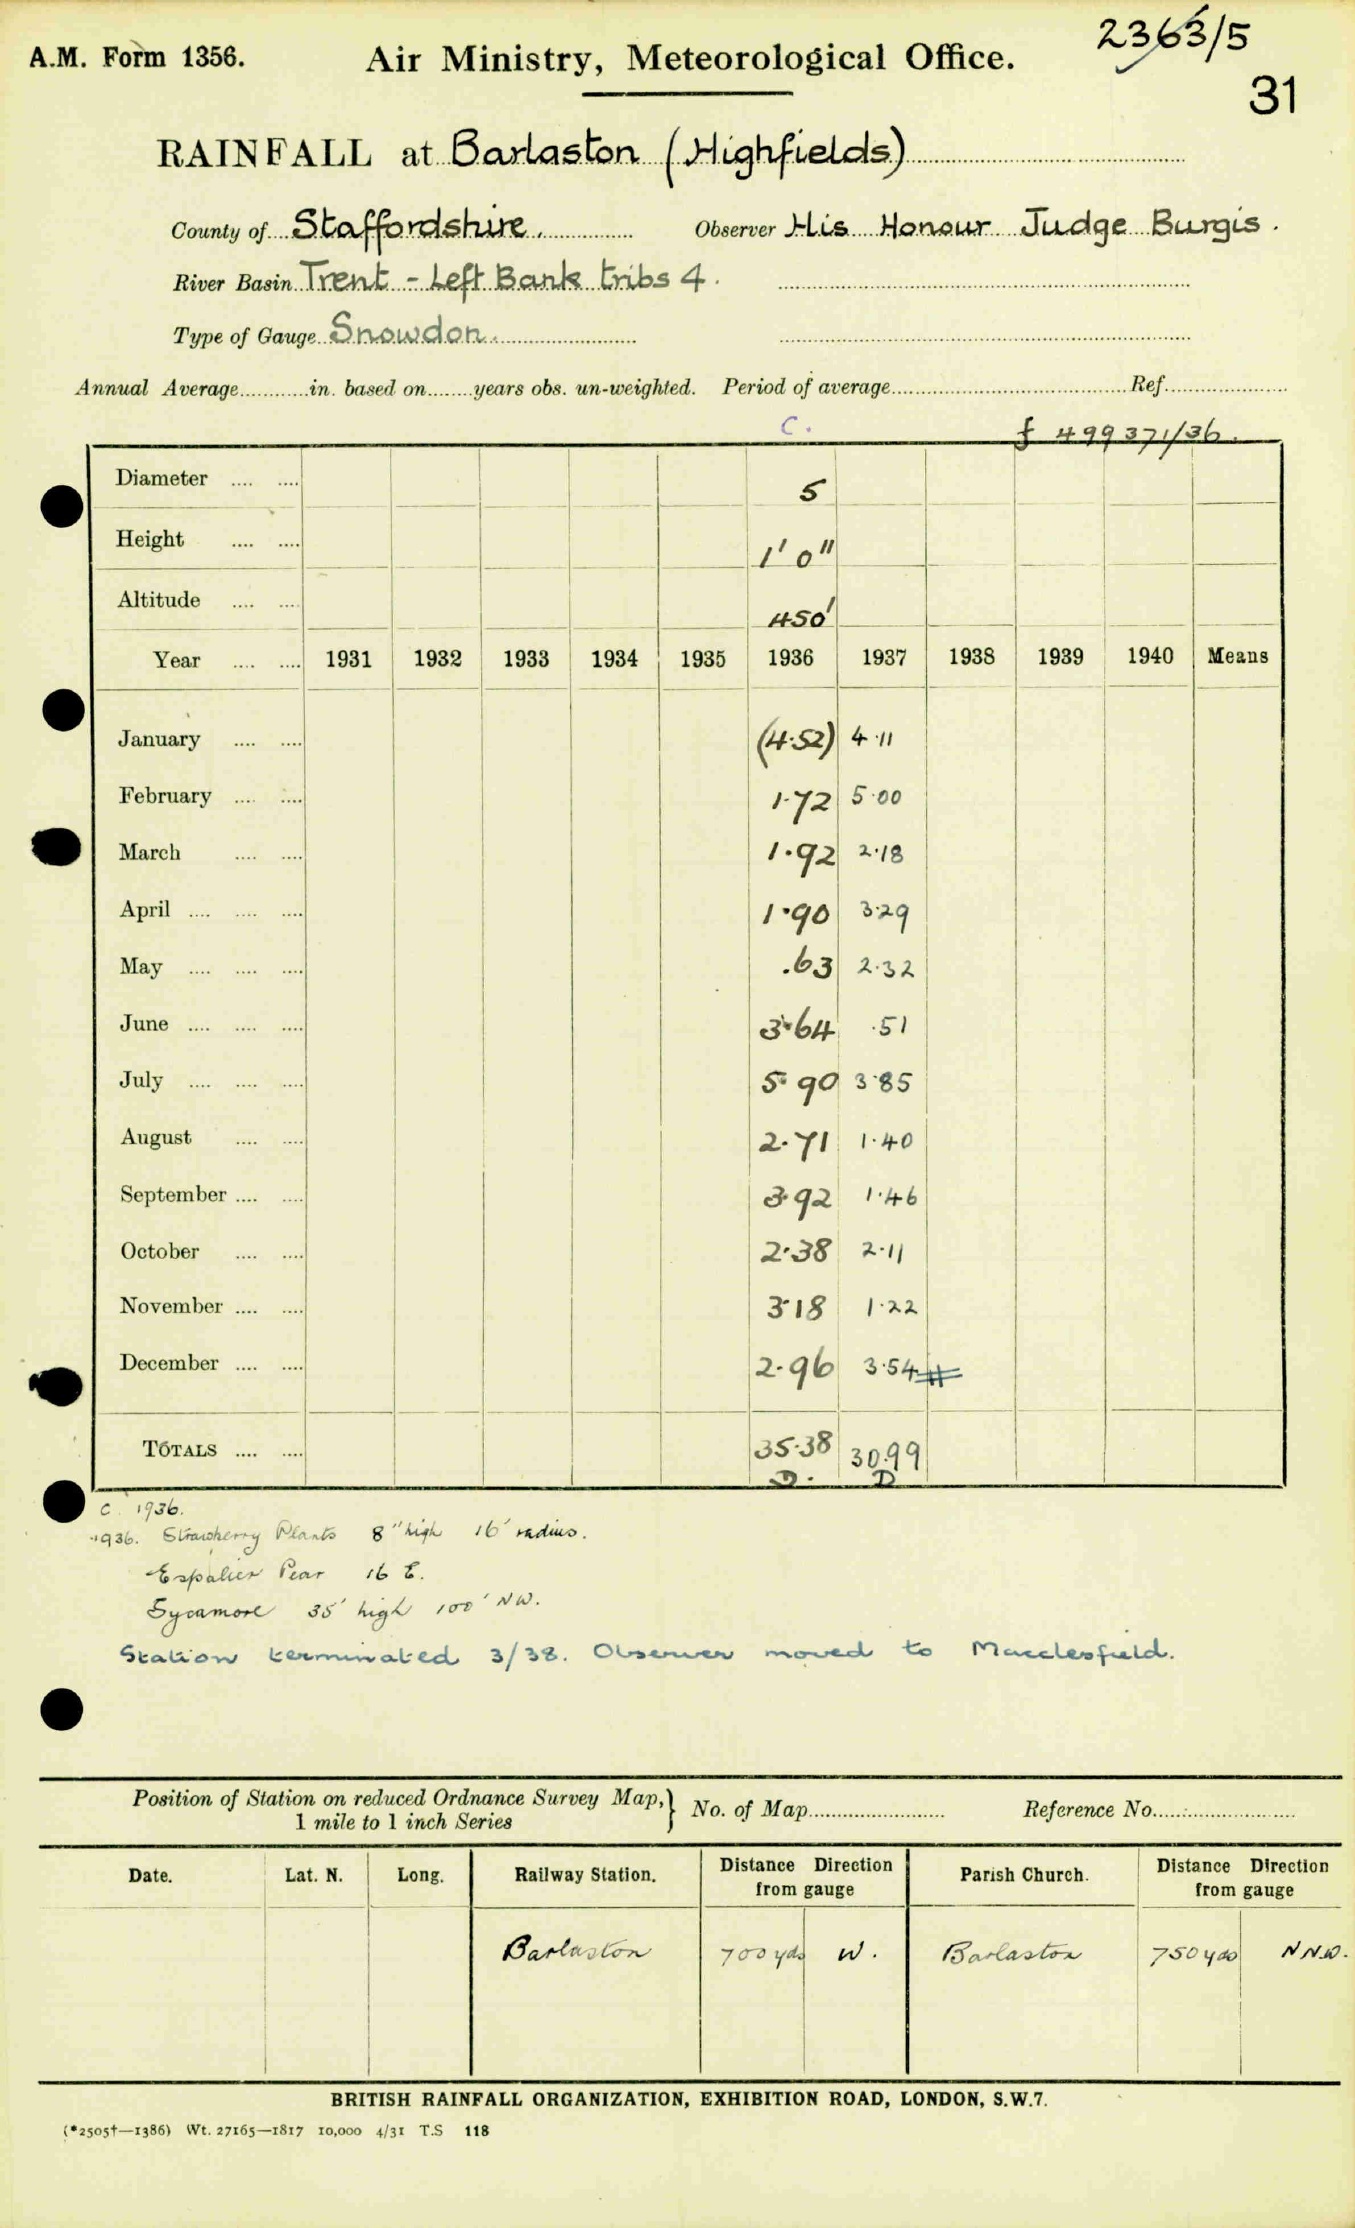 2363/5
A.M. Form 1356. Air Ministry, Meteorological Office.
31
RAINFALL at Barlaston (Highfields)
County of Staffordshire. Observer His Honour Judge Burgis.
River Basin Trent - Left Bank tribs 4.
Type of Gauge Snowdon.
Annual Average............in. based on........years obs. un-weighted. Period of average.......... Ref..........
C. £ 499371/36.
Diameter .... .... 5
Height .... .... 1' 0"
Altitude .... .... 450'
Year .... .... 1931 1932 1933 1934 1935 1936 1937 1938 1939 1940 Means
January .... .... (4.52) 4.11
February .... .... 1.72 5.00
March .... .... 1.92 2.18
April .... .... .... 1.90 3.29
May .... .... .... .63 2.32
June .... .... .... 3.64 .51
July .... .... .... 5.90 3.85
August .... .... 2.71 1.40
September .... .... 3.92 1.46
October .... .... 2.38 2.11
November .... .... 3.18 1.22
December .... .... 2.96 3.54 #
TOTALS .... .... 35.38 30.99
D. D
C 1936.
1936. Strawberry Plants 8" high 16' radius.
Espalier Pear 16 E.
Sycamore 35' high 100' NW.
Station terminated 3/38. Observer moved to Macclesfield.
Position of Station on reduced Ordnance Survey Map, } No. of Map.......... Reference No..........
1 mile to 1 inch Series
Date. Lat. N. Long. Railway Station. Distance Direction from gauge Parish Church. Distance Direction from gauge
Barlaston 700 yds W. Barlaston 750 yds NNW.
BRITISH RAINFALL ORGANIZATION, EXHIBITION ROAD, LONDON, S.W.7.
(*2505†—1386) Wt. 27165—1817 10,000 4/31 T.S 118